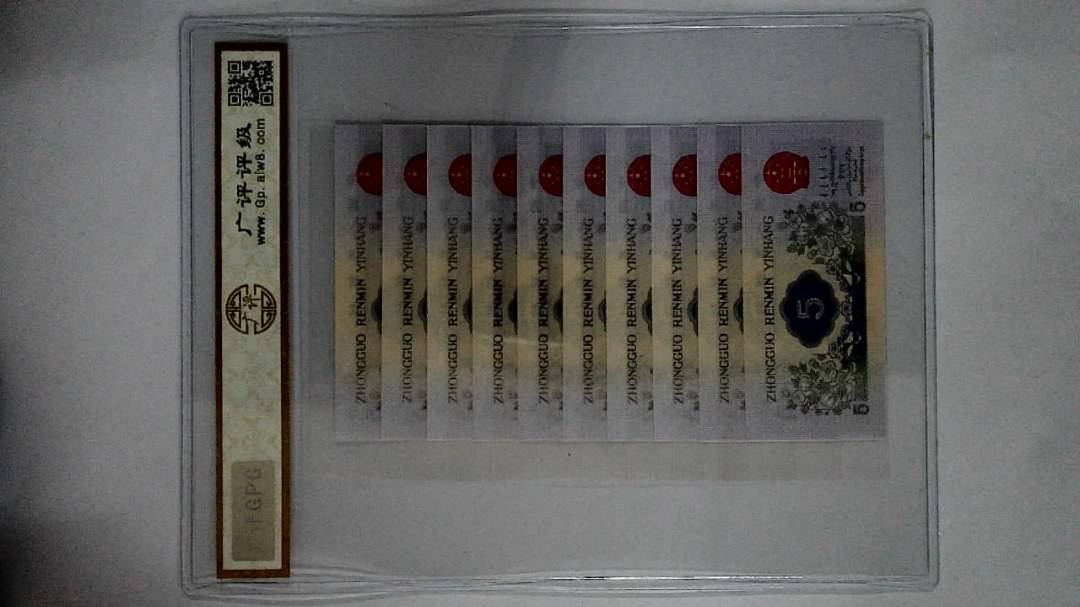 广评评级
www.Gp.alw8.com
广评
GPG
ZHONGGUO RENMIN YINHANG
ZHONGGUO RENMIN YINHANG
ZHONGGUO RENMIN YINHANG
ZHONGGUO RENMIN YINHANG
ZHONGGUO RENMIN YINHANG
ZHONGGUO RENMIN YINHANG
ZHONGGUO RENMIN YINHANG
ZHONGGUO RENMIN YINHANG
ZHONGGUO RENMIN YINHANG
ZHONGGUO RENMIN YINHANG
5
5
5